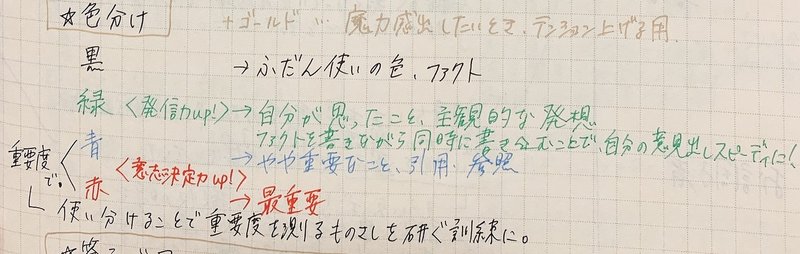 ☆色分け
+ゴールド … 魔力感出したいとき、テンション上げる用
黒 → ふだん使いの色、ファクト
緑 〈発信力up!〉→ 自分が思ったこと、主観的な発想
ファクトを書きながら同時に書き込むことで、自分の意見出しスピーディに!
重要度で。
青 → やや重要なこと、引用、参照
赤 〈意志決定力up!〉→ 最重要
使い分けることで重要度を測るものさしを研ぐ訓練に。